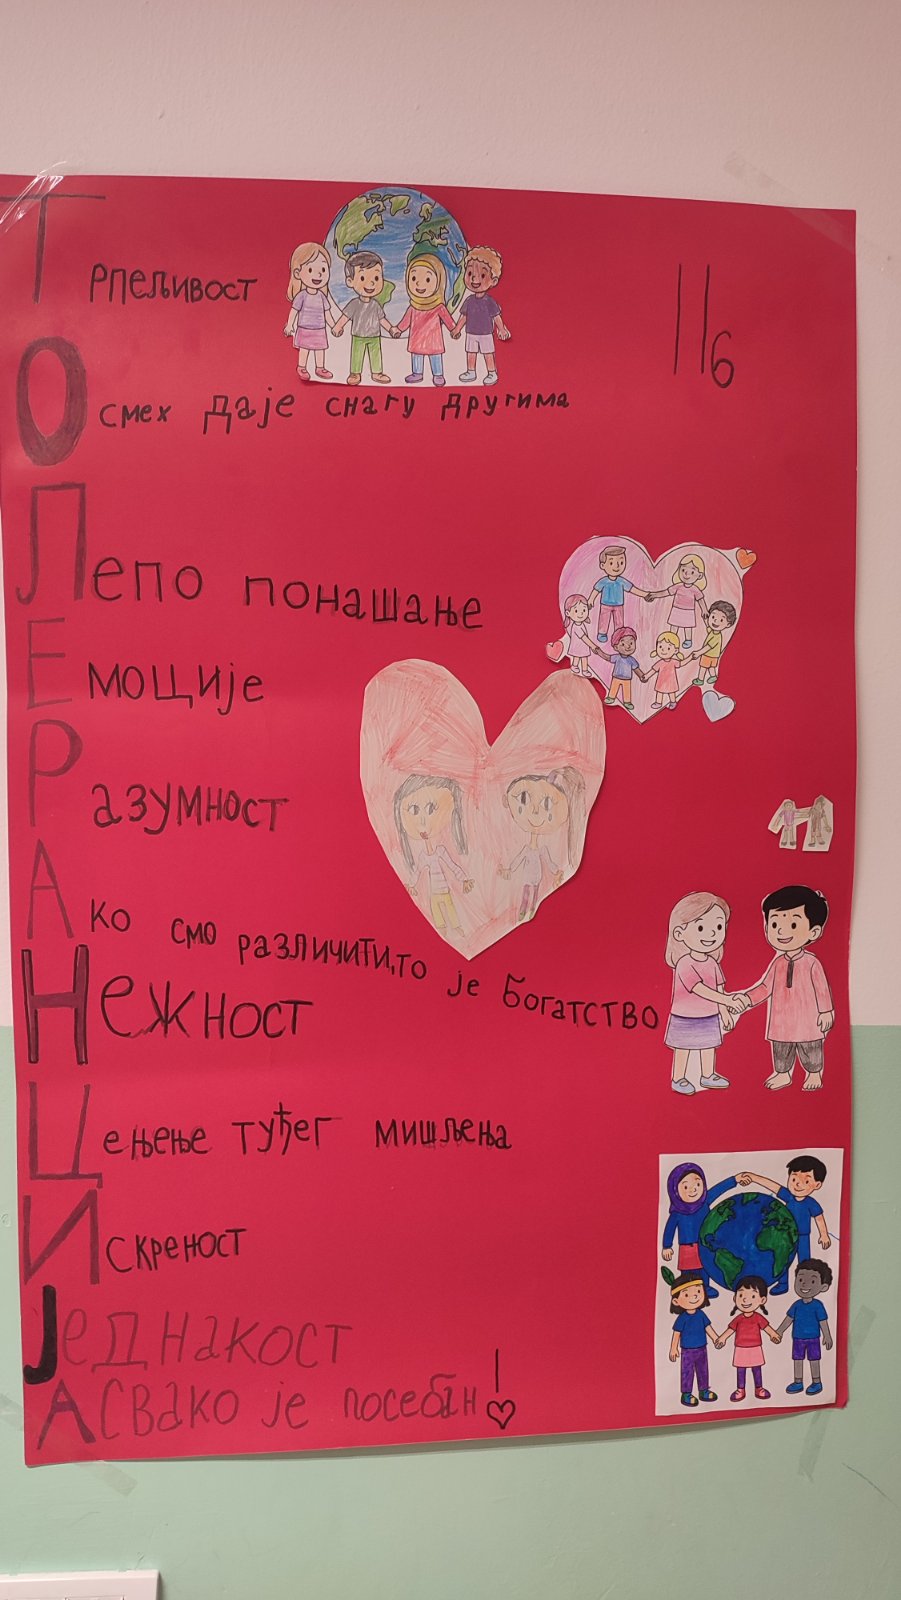 Трпељивост
IIб
Осмех даје снагу другима
Лепо понашање
Емоције
Разумност
Ако смо различити, то је богатство
Нежност
Цењење туђег мишљења
Искреност
Једнакост
А свако је посебан!